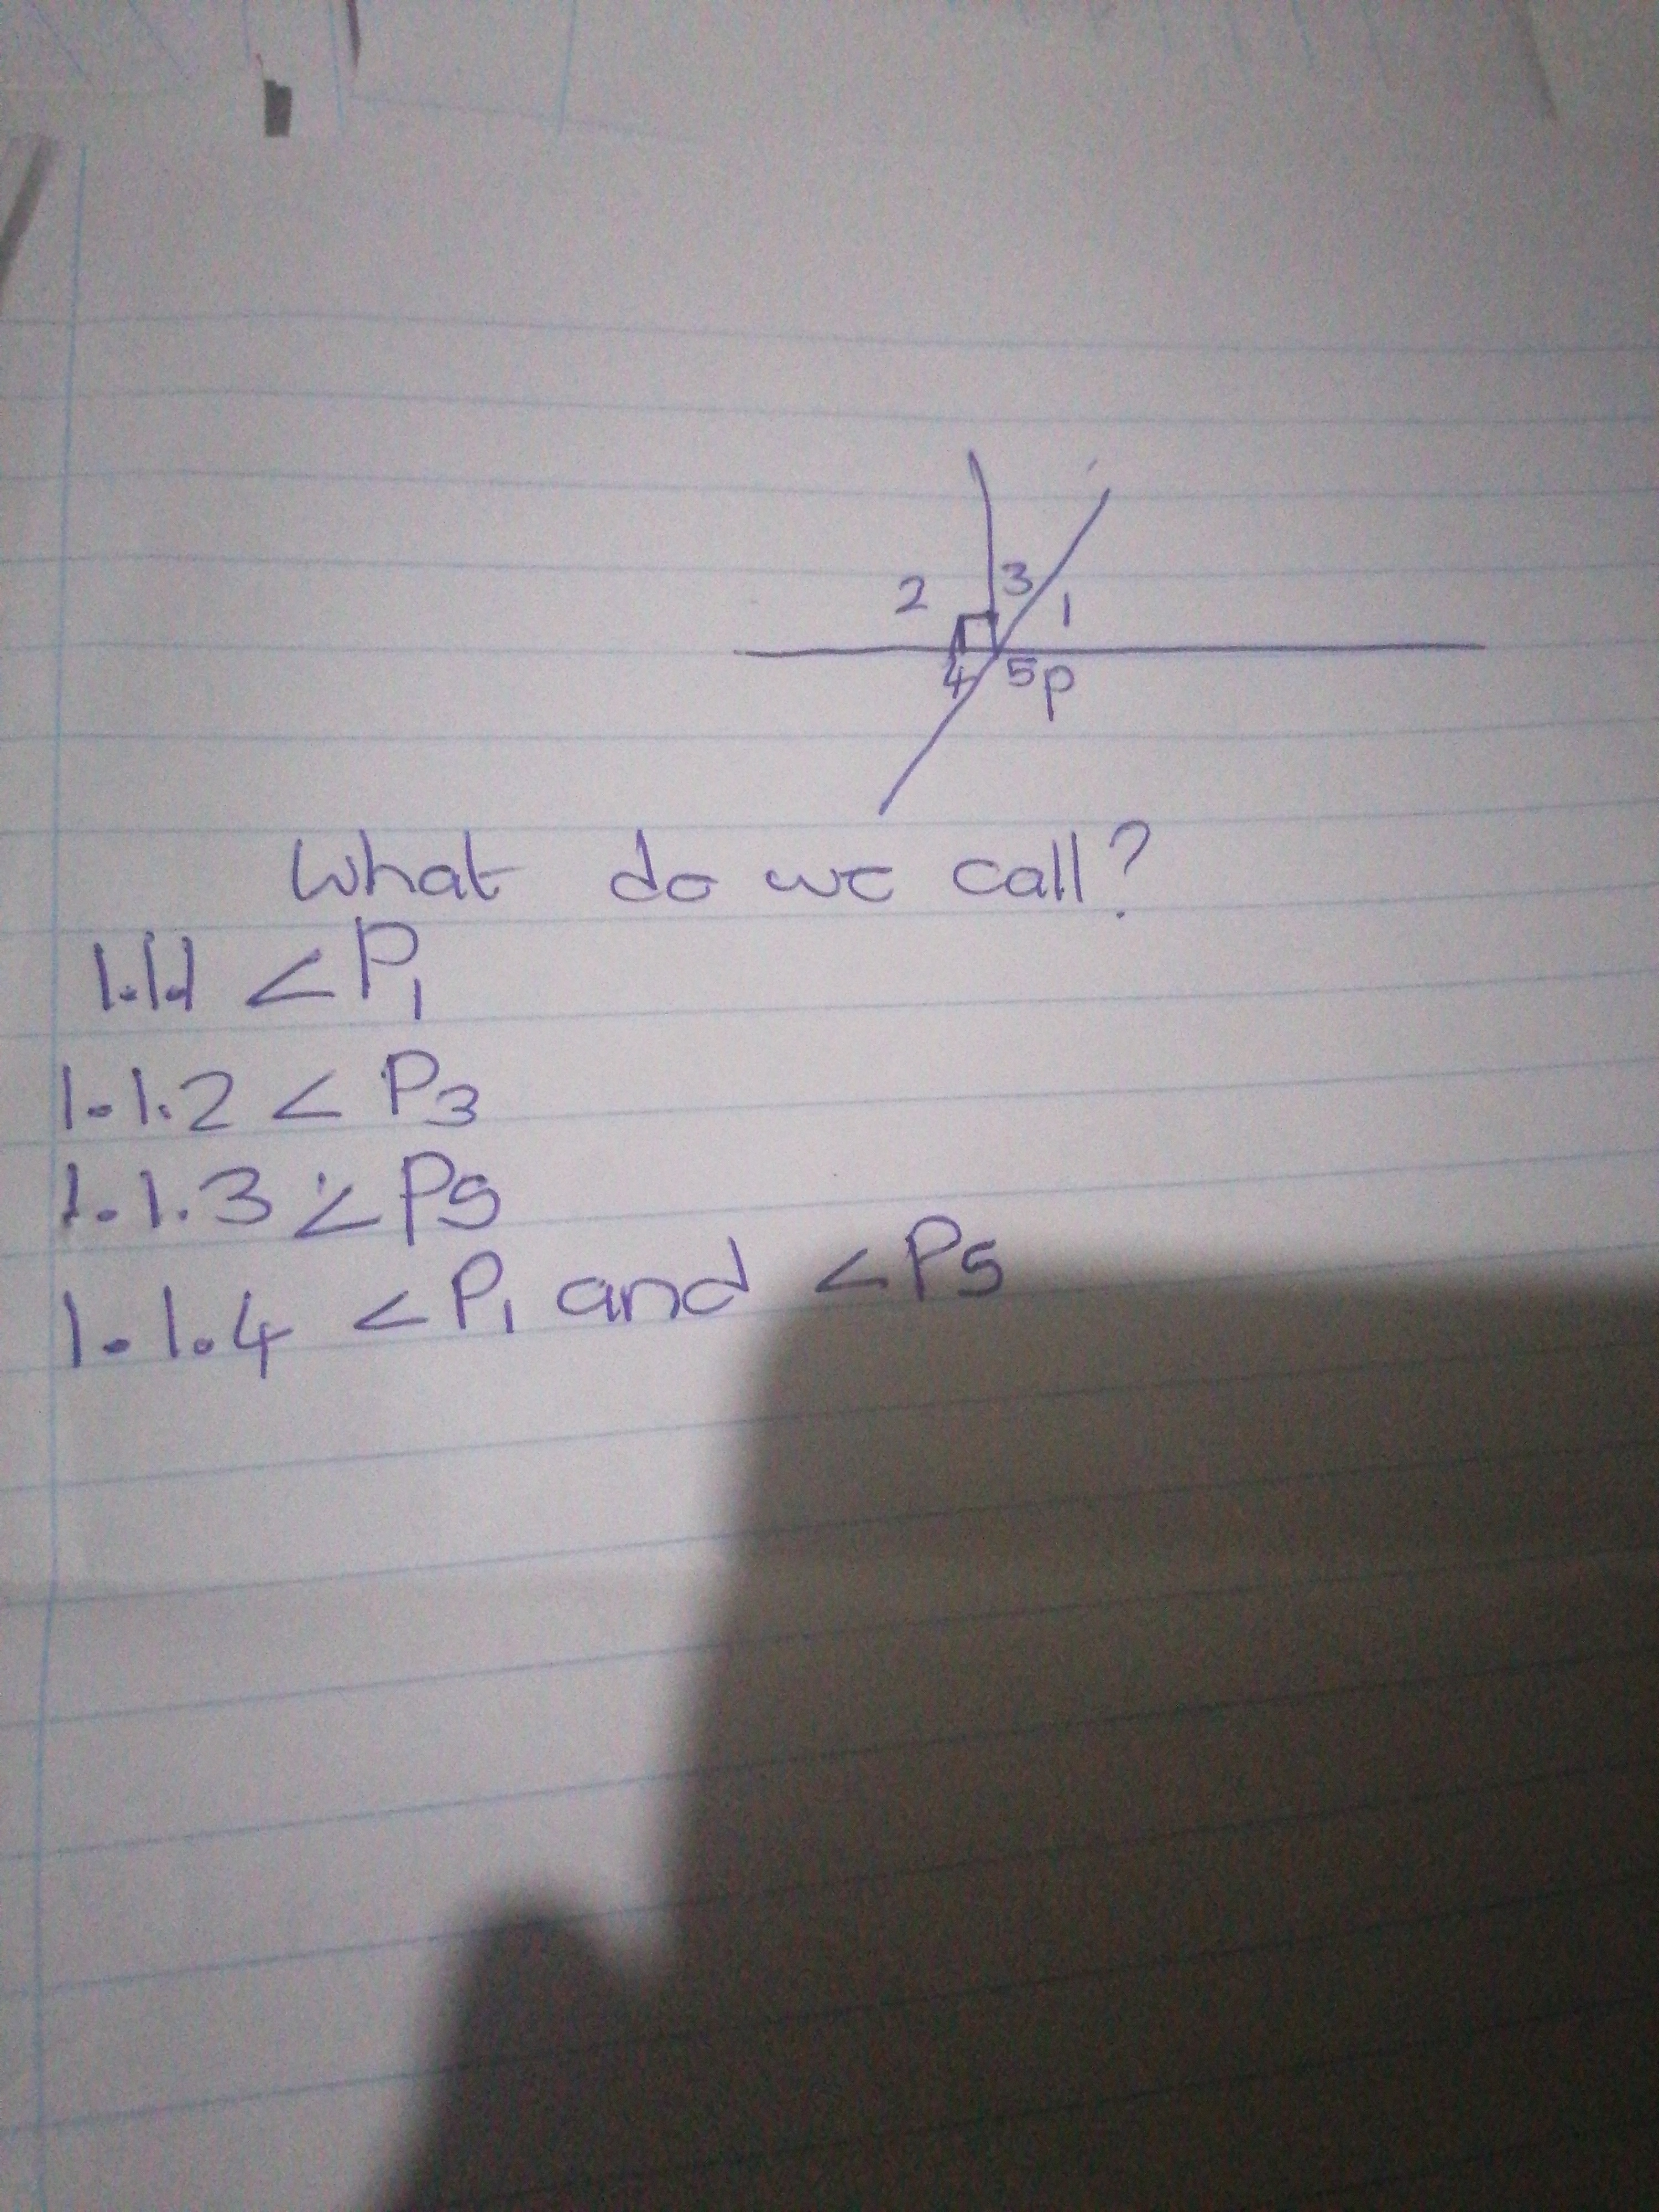 2 3 1
4 5 P
What do we call?
1.1.1 <P₁
1.1.2 < P₃
1.1.3 < P5
1.1.4 <P₁ and <P5